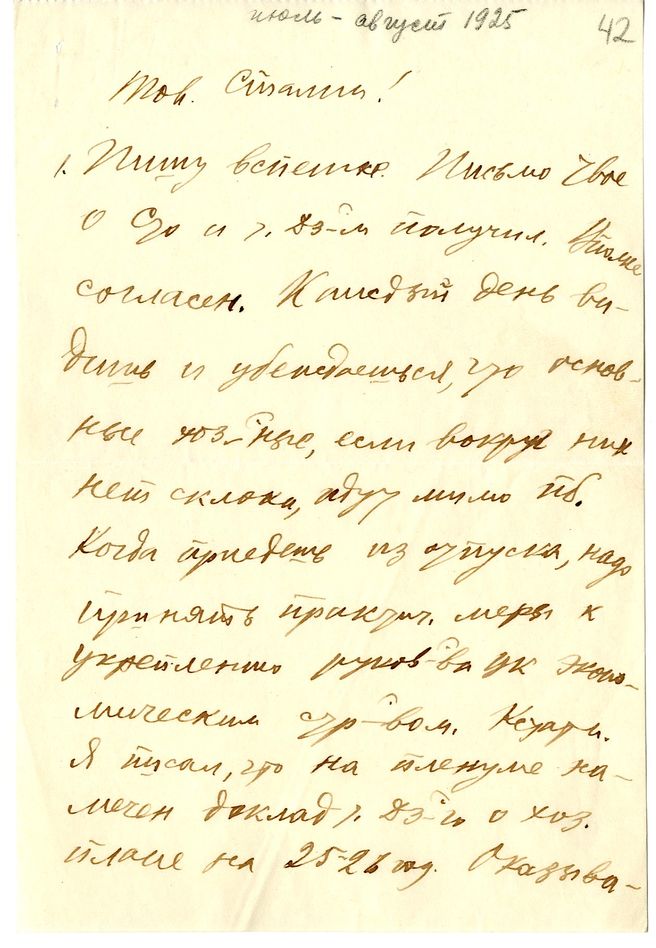 июль - август 1925
42
Тов. Сталин!
1. Пишу вспешке. Письмо твое
о Сто и т. Дз-м получил. Вполне
согласен. Каждый день ви-
дишь и убеждаешься, что основ-
ные хоз-ные, если вокруг них
нет склоки, идут мимо ПБ.
Когда приедешь из отпуска, надо
принять практич. меры к
укреплению руков-ва ЦК эконо-
мическим стр-вом. Кстати.
Я писал, что на пленуме на-
мечен доклад т. Дз-го о хоз.
плане на 25-26 год. Оказыва-